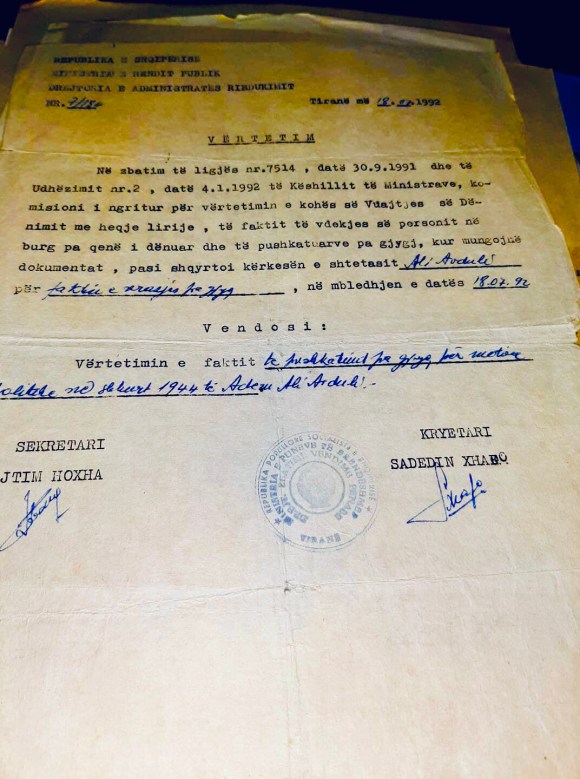 REPUBLIKA E SHQIPERISE
MINISTRIA E RENDIT PUBLIK
DREJTORIA E ADMINISTRATES RIEDUKIMIT
NR. Tiranë më 18. 1992
VËRTETIM
Në zbatim të ligjës nr.7514 , datë 30.9.1991 dhe të
Udhëzimit nr.2 , datë 4.1.1992 të Këshillit të Ministrave, ko-
misioni i ngritur për vërtetimin e kohës së Vuajtjes së Dë-
nimit me heqje lirije , të faktit të vdekjes së personit në
burg pa qenë i dënuar dhe të pushkatuarve pa gjygj, kur mungojnë
dokumentat , pasi shqyrtoi kërkesën e shtetasit Ali Avduli
për faktin e pa gjyq , në mbledhjen e datës 18.07.92
Vendosi:
Vërtetimin e faktit të pushkatimit pa gjyq për motive
politike në shkurt 1944 të Adem Ali Avduli.-
SEKRETARI KRYETARI
JTIM HOXHA SADEDIN XHABO
REPUBLIKA POPULLORE SOCIALISTE E SHQIPERISE
MINISTRIA E PUNEVE TË BRENDESHME